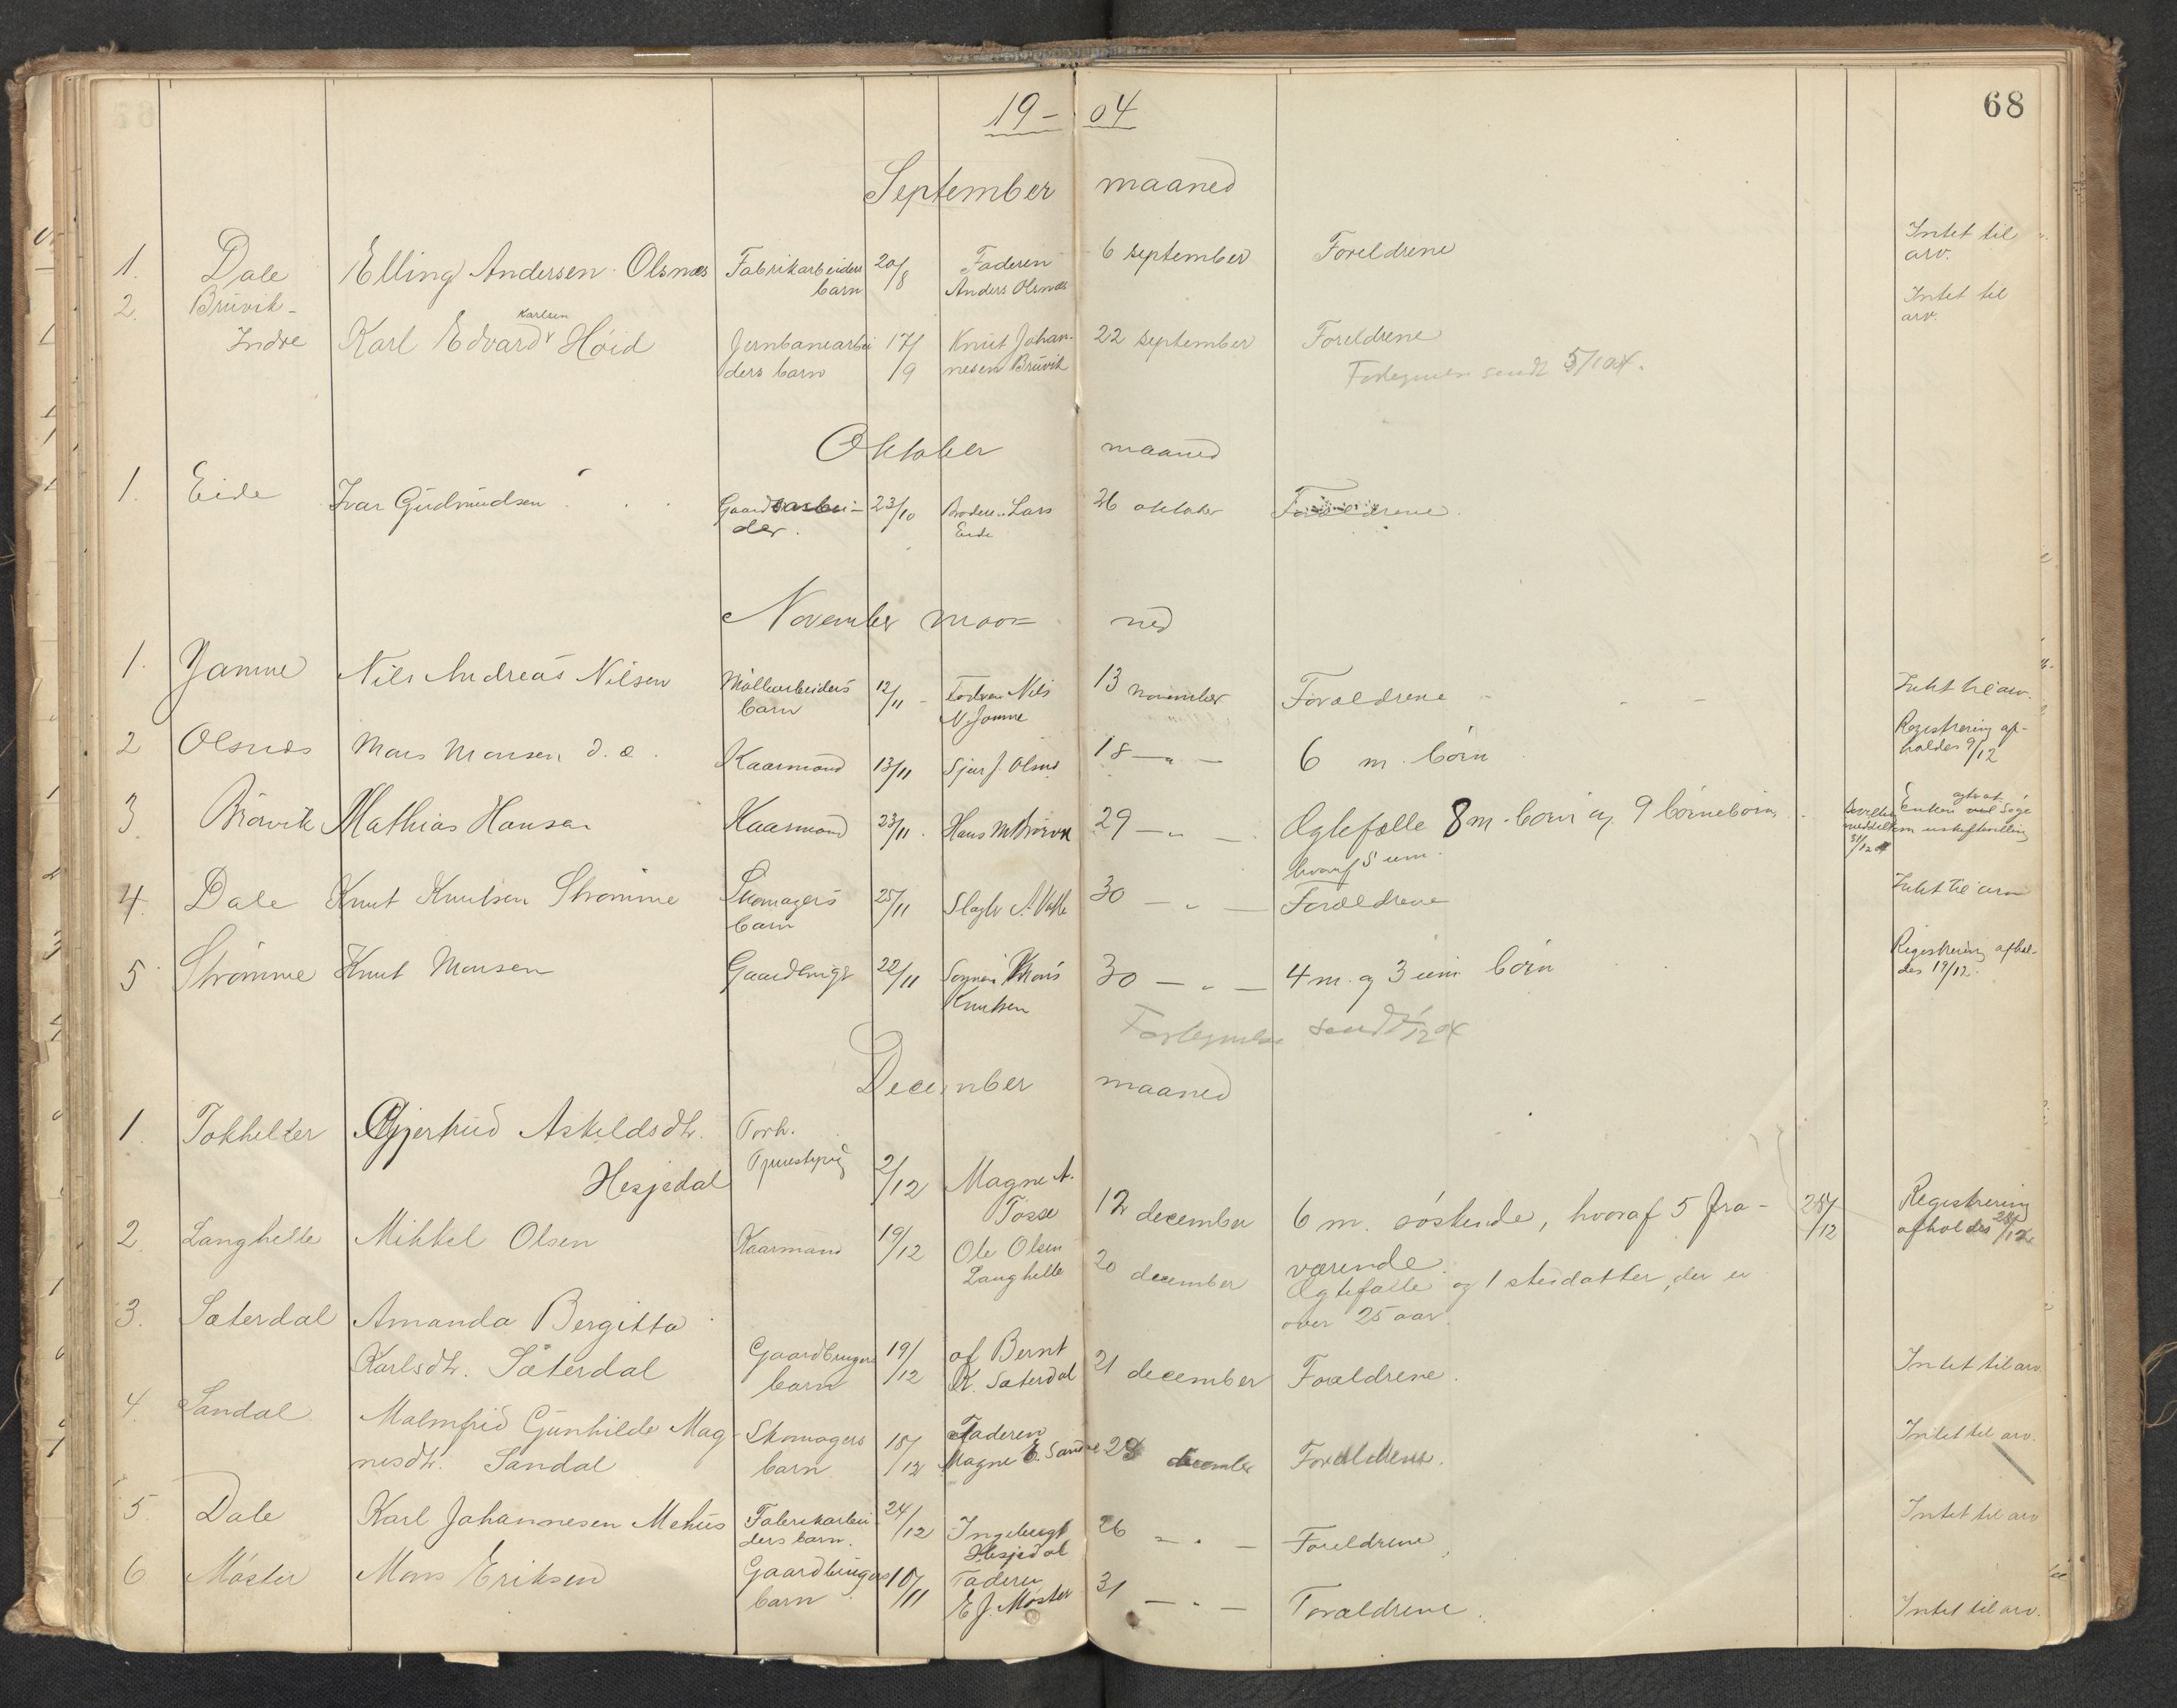 19-04
68
September maaned
1. Dale Elling Andersen Olsnæs Fabrikarbeiders barn 20/8 Faderen Anders Olsnæs 6 september Foreldrene Intet til arv.
2. Bruvik-Indre Karl Edvard Karlsen Høid Jernbanearbeiders barn 17/9 Knut Johannesen Bruvik 22 september Foreldrene Intet til arv.
sendt 5/10 04.
Oktober maaned
1. Eide Ivar Gudmudsen Gaardsarbeider. 23/10 Lars Eide 26 oktober Forældrene.
November maaned
1. Jamne Nils Andreas Nilsen barn 12/11 Nils N. Jamne 13 november Forældrene Intet til arv.
2 Olsnæs Mons Monsen d. æ. Kaarmand 13/11 Sjur J. Olsnæs 18 — " — 6 m. børn Registrering afholdes 9/12
3. Brørvik Mathias Hansen Kaarmand 23/11. Hans M Brørvik 29 — " — Ægtefælle 8 m. børn og 9 børnebørn, hvoraf 5 um. Enken agter at søge om uskifte 31/12 04
4. Dale Knut Knutsen Strømme Skomagers barn 25/11 30 — " — Forældrene Intet til arv
5 Strømme Knut Monsen Gaardbruger 22/11 Sønnen Mons Knutsen 30 — " — 4 m. og 3 um. børn Registrering afholdes 19/12.
sendt 1/12 04
December maaned
1. Tokheller Gjertrud Askeldsdtr. Hesjedal Forh. 2/12 Magne A. Fosse 12 december 6 m. søskende, hvoraf 5 fraværende. 28/12 Registrering afholdes 28/12
2 Langhelle Mikkel Olsen Kaarmand 19/12 Ole Olsen Langhelle 20 december Ægtefælle og 1 steddatter, der er over 25 aar.
3. Sæterdal Amanda Bergitta Karlsdtr. Sæterdal Gaardbrugers barn 19/12 af Bernt K. Sæterdal 21 december Forældrene. Intet til arv.
4. Sandal Malmfrid Gunhilde Magnesdtr. Sandal Skomagers barn 18/12 Faderen Magne E. Sandal december Forældrene. Intet til arv.
5. Dale Karl Johannesen Mehus Fabrikarbeiders barn. 24/12 Ingeborg Hesjedal 26 — " — Foreldrene, Intet til arv
6 Møster Mons Eriksen Gaardbrugers barn 10/11 Faderen E J. Møster 31 — " — Forældrene. Intet til arv.